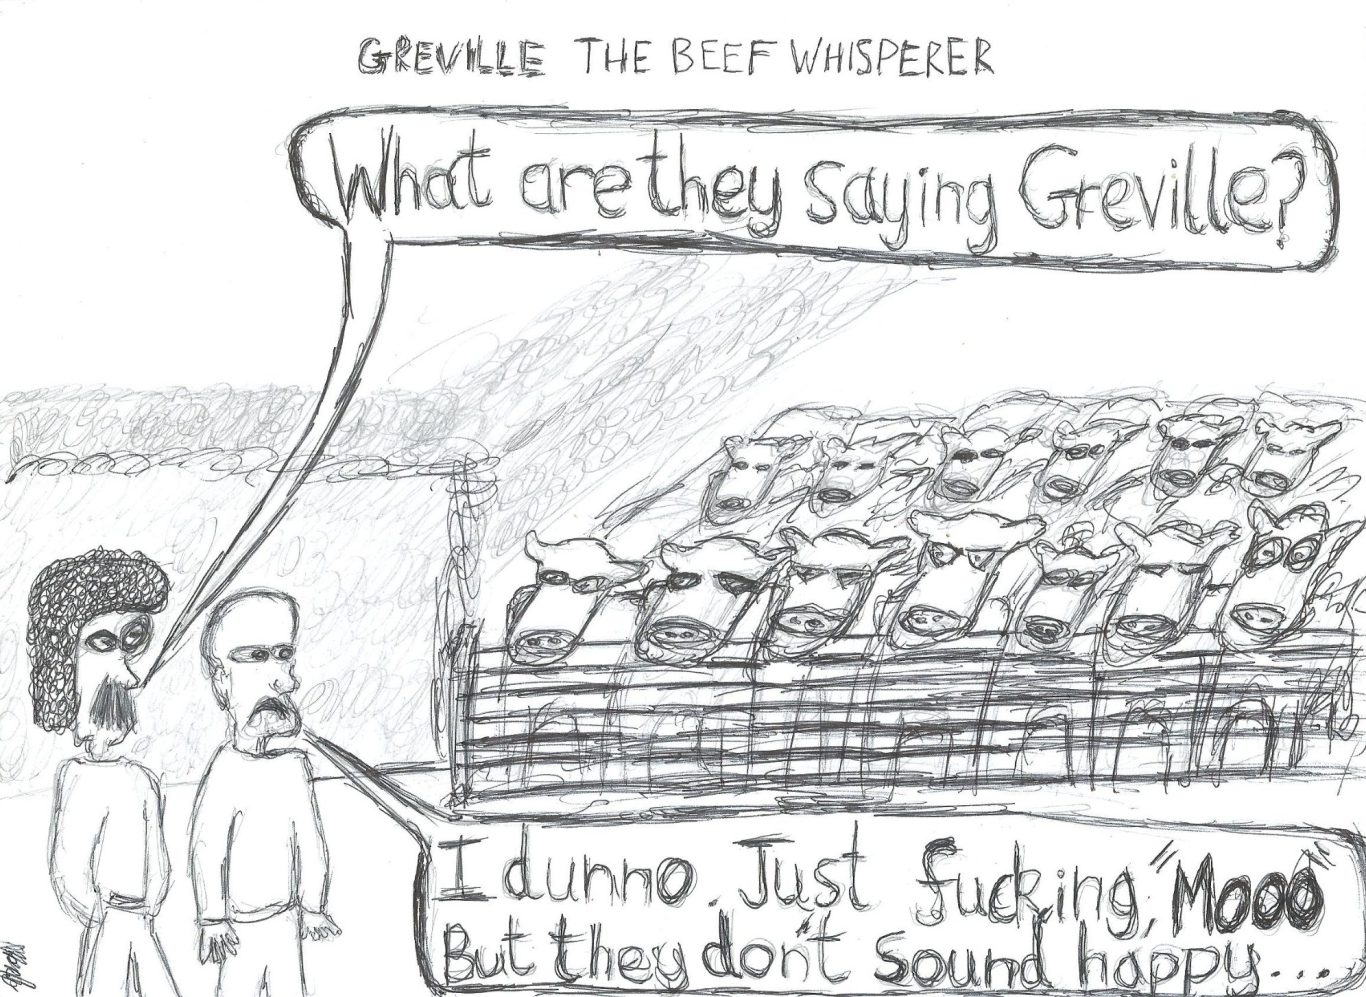 GREVILLE THE BEEF WHISPERER
What are they saying Greville?
I dunno. Just fucking, "Mooo"
But they don't sound happy...